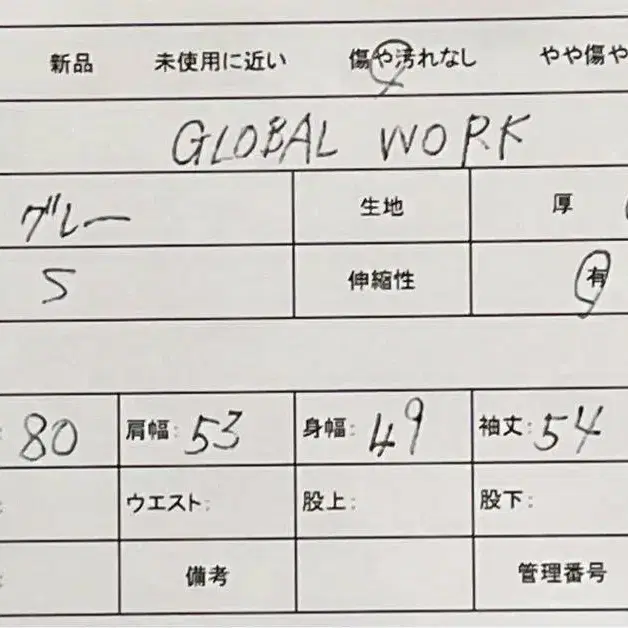 新品 未使用に近い 傷や汚れなし やや傷や
GLOBAL WORK
グレー 生地 厚
S 伸縮性 有
: 80 肩幅: 53 身幅: 49 袖丈: 54
: ウエスト: 股上: 股下:
: 備考 管理番号